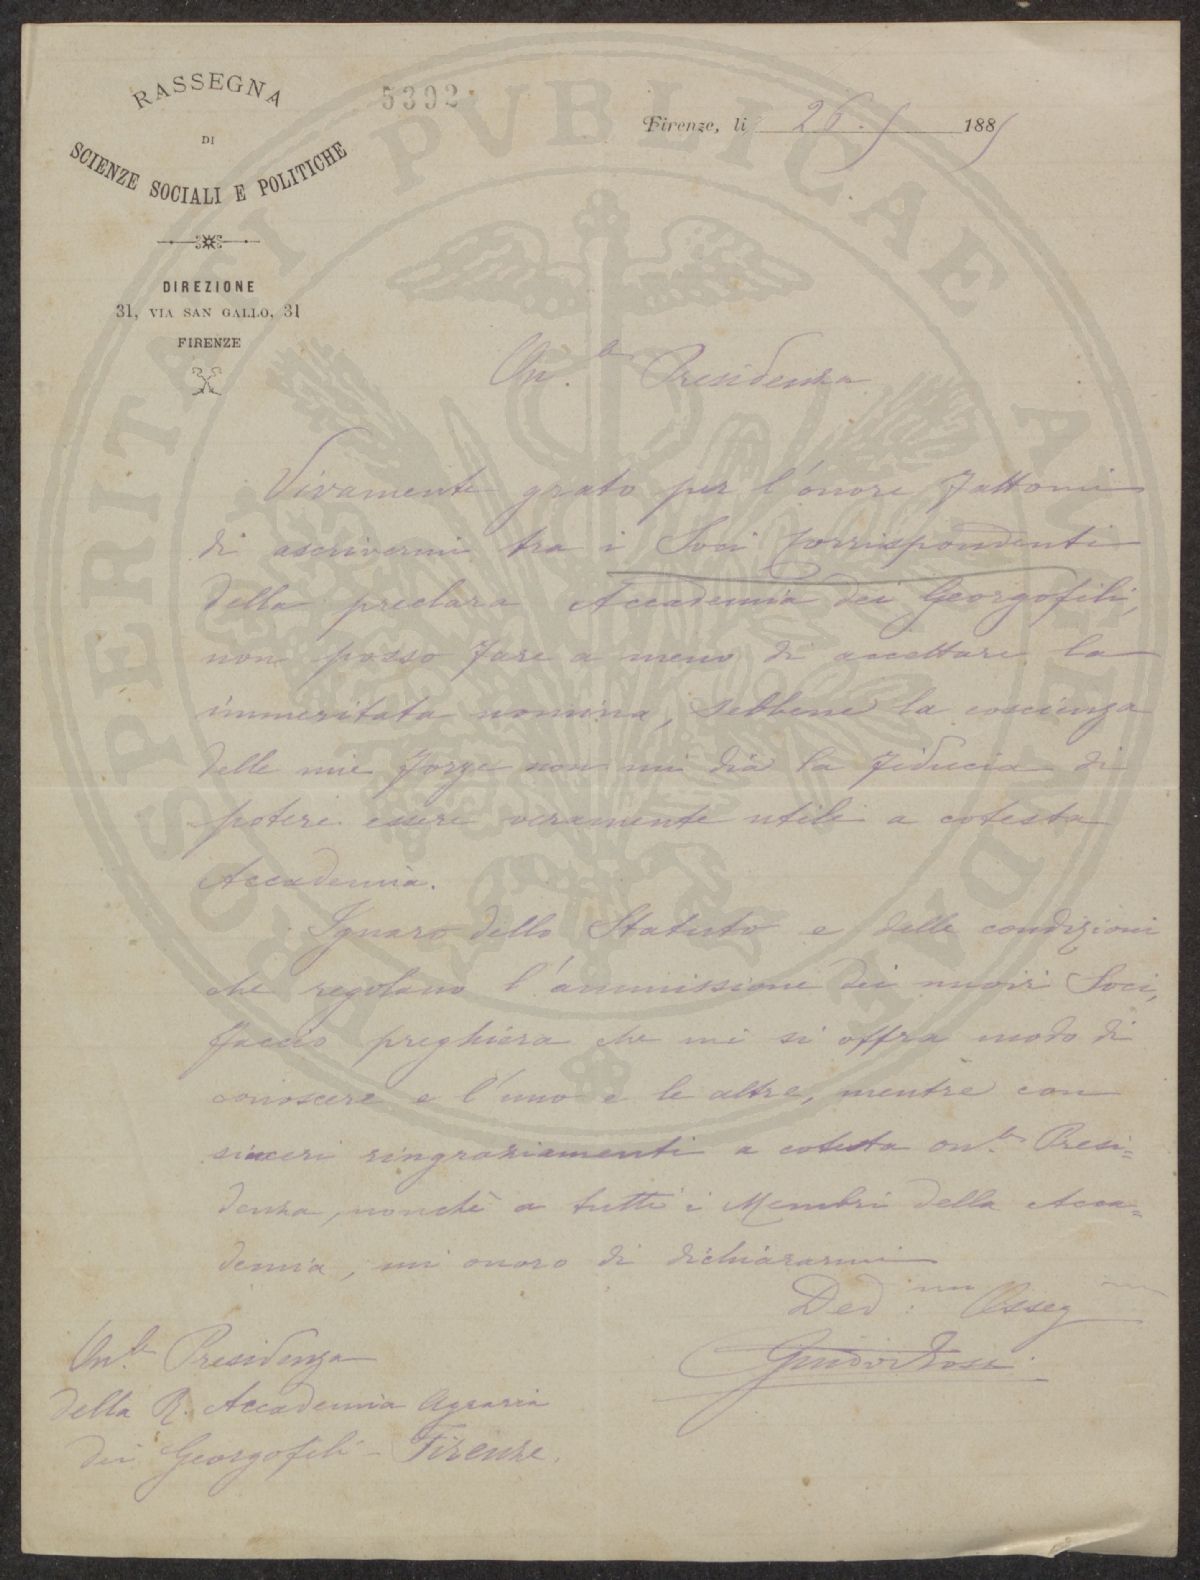 RASSEGNA
DI
SCIENZE SOCIALI E POLITICHE
DIREZIONE
31, VIA SAN GALLO, 31
FIRENZE
5392
Firenze, li 26. 5 1885
On.le Presidenza
Vivamente grato per l'onore fattomi
di ascrivermi tra i Soci Corrispondenti
della preclara Accademia dei Georgofili,
non posso fare a meno di accettare la
immeritata nomina, sebbene la coscienza
delle mie forze non mi dia la fiducia di
potere essere veramente utile a cotesta
Accademia.
Ignaro dello Statuto e delle condizioni
che regolano l'ammissione dei nuovi Soci,
faccio preghiera che mi si offra modo di
conoscere e l'uno e le altre, mentre con
sinceri ringraziamenti a cotesta on.le Presi=
denza, nonchè a tutti i Membri della Acca=
demia, mi onoro di dichiararmi
Ded.mo Osseq.mo
Guido
On.le Presidenza
della R. Accademia Agraria
dei Georgofili - Firenze.
PROSPERITATI PVBLICAE AVGENDAE